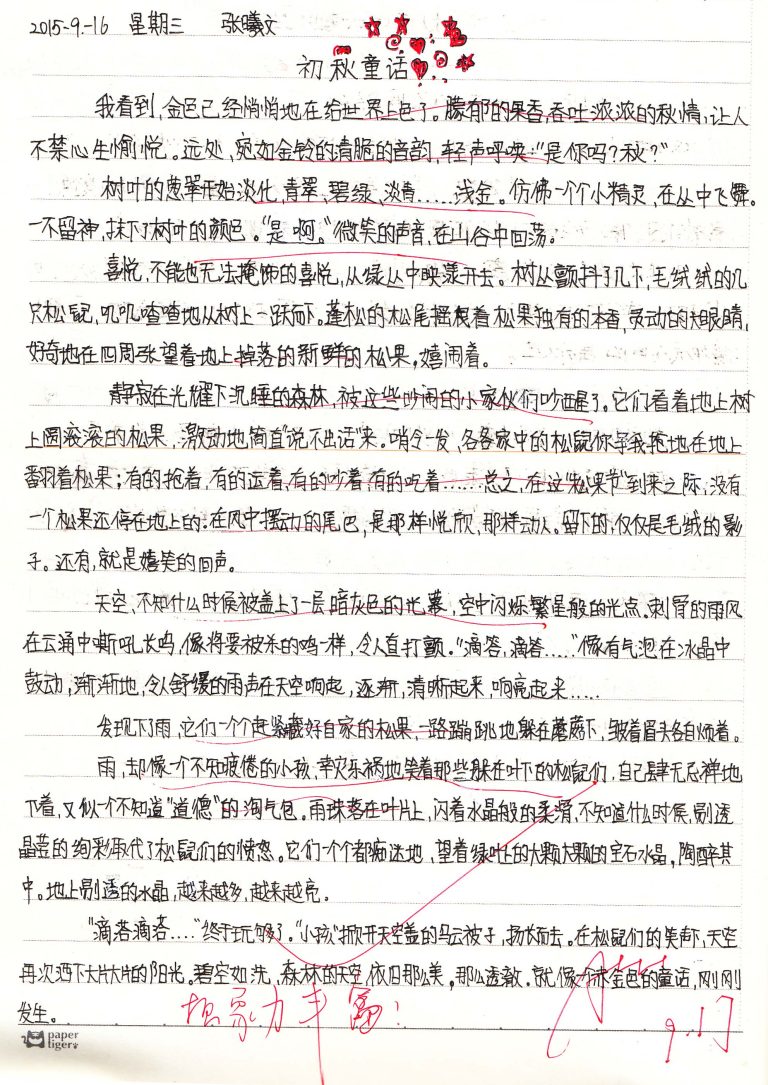 2015-9.-16 星期三 张曦文
初秋童话
我看到,金色已经悄悄地在给世界上色了。朦郁的果香,吞吐浓浓的秋情,让人
不禁心生愉悦。远处,宛如金铃的清脆的音韵,轻声呼唤:"是你吗?秋?"
树叶的葱翠开始淡化,青翠、碧绿、淡青……浅金。仿佛一个个小精灵,在丛中飞舞。
一不留神,抹下了树叶的颜色。"是啊。"微笑的声音,在山谷中回荡。
喜悦,不能也无法掩饰的喜悦,从绿丛中映漾开去。树丛颤抖了几下,毛绒绒的几
只松鼠,叽叽喳喳地从树上一跃而下。蓬松的松尾摇曳着松果独有的木香,灵动的大眼睛,
好奇地在四周张望着地上掉落的新鲜的松果,嬉闹着。
静寂在光耀下沉睡的森林,被这些吵闹的小家伙们吵醒了。它们看着地上树
上圆滚滚的松果,激动地简直"说不出话"来。哨令一发,各各家中的松鼠你争我抢地在地上
翻着松果;有的抢着,有的运着,有的吵着,有的吃着……总之,在这"松果节"到来之际,没有
一个松果还停在地上的。在风中摆动的尾巴,是那样悦欣,那样动人。留下的,仅仅是毛绒的影
子。还有,就是嬉笑的回声。
天空、不知什么时候被盖上了一层暗灰色的光幕,空中闪烁繁星般的光点。刺骨的雨风
在云涌中嘶吼长鸣,像将要被杀的鸣一样,令人直打颤。"滴答,滴答……"像有气泡在冰晶中
鼓动,渐渐地,令人舒缓的雨声在天空响起,逐渐,清晰起来,响亮起来……
发现下了雨,它们一个个赶紧藏好自家的松果,一路蹦跳地躲在蘑菇下,皱着眉头各自烦着。
雨,却像一个不知疲倦的小孩,幸灾乐祸地笑着那些躲在叶下的松鼠们,自己肆无忌惮地
下着,又似一个不知道"道德"的淘气包。雨珠落在叶片上,闪着水晶般的柔滑,不知道什么时候,剔透
晶莹的绚彩取代了松鼠们的愤怒。它们一个个都痴迷地,望着绿叶上的大颗大颗的宝石水晶,陶醉其
中。地上剔透的水晶,越来越多,越来越亮。
"滴答滴答……"终于玩够了。"小孩"掀开天空盖的乌云被子,扬长而去。在松鼠们的笑声下,天空
再次洒下大片大片的阳光。碧空如洗,森林的天空,依旧那么美,那么透敦。就像个赤金色的童话,刚刚
发生。
想象力丰富!
9.17
paper
tiger